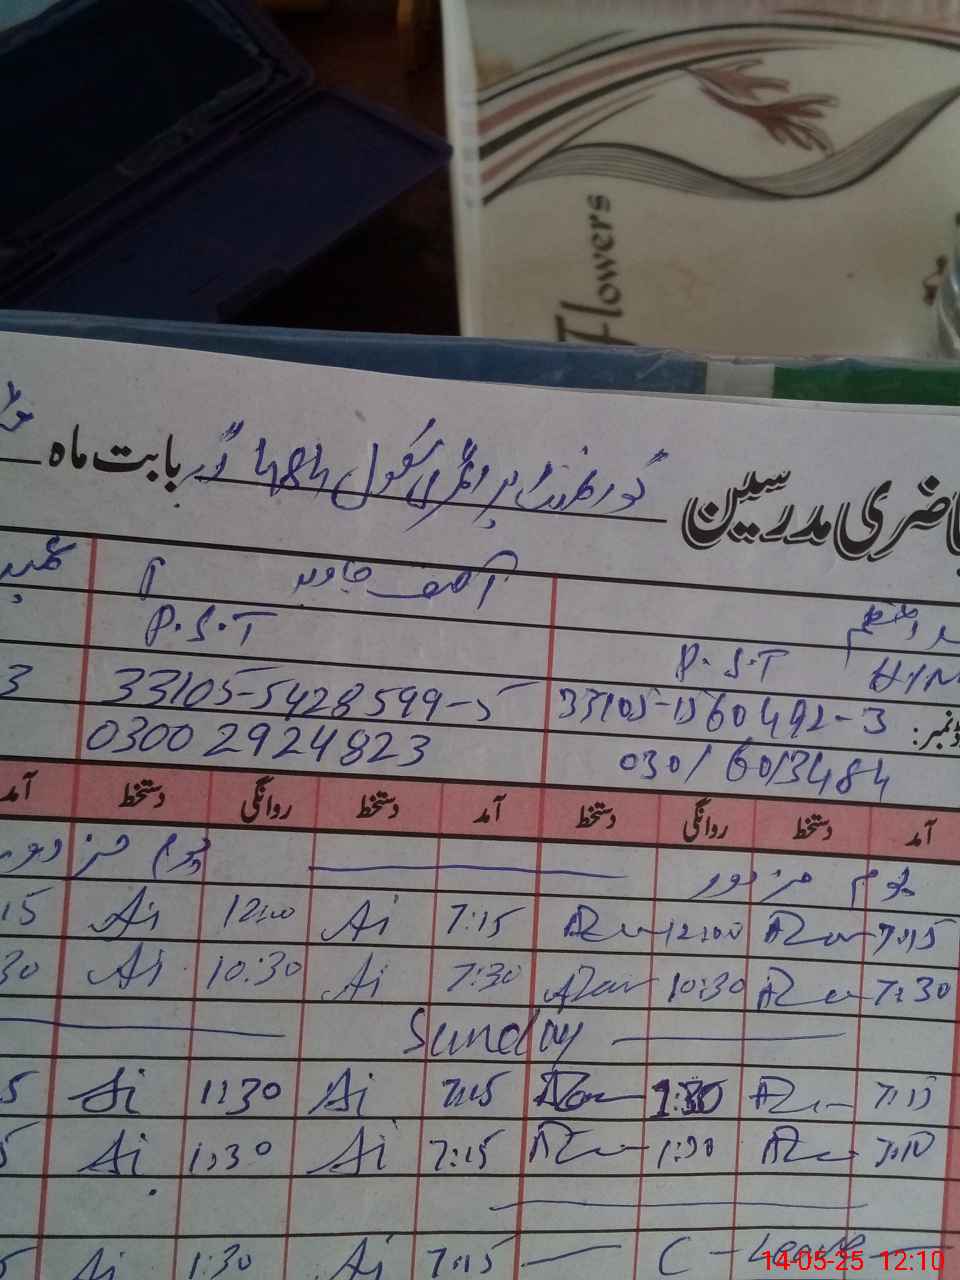 Flowers
حاضری مدرسین گورنمنٹ پرائمری سکول 484 گ ب بابت ماہ
آصف جاوید
P.S.T P.S.T
33105-1560492-3 33105-5428599-5 3
0301 6013484 0300 2924823
آمد دستخط روانگی دستخط آمد دستخط روانگی دستخط آمد
یوم مزدور یوم مزدور
7:15 12:00 7:15 Ai 12:00 Ai 15
7:30 10:30 7:30 Ai 10:30 Ai 30
Sunday
7:15 1:30 7:15 Ai 1:30 Ai 5
7:10 1:30 7:15 Ai 1:30 Ai 5
C - Leave 7:15 Ai 1:30 Ai 5
14-05-25 12:10